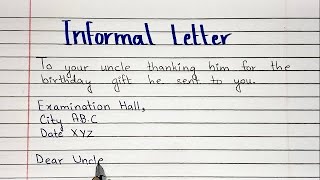 Informal Letter
To your uncle thanking him for the
birthday gift he sent to you.
Examination Hall,
City A.B.C
Date XYZ
Dear Uncle